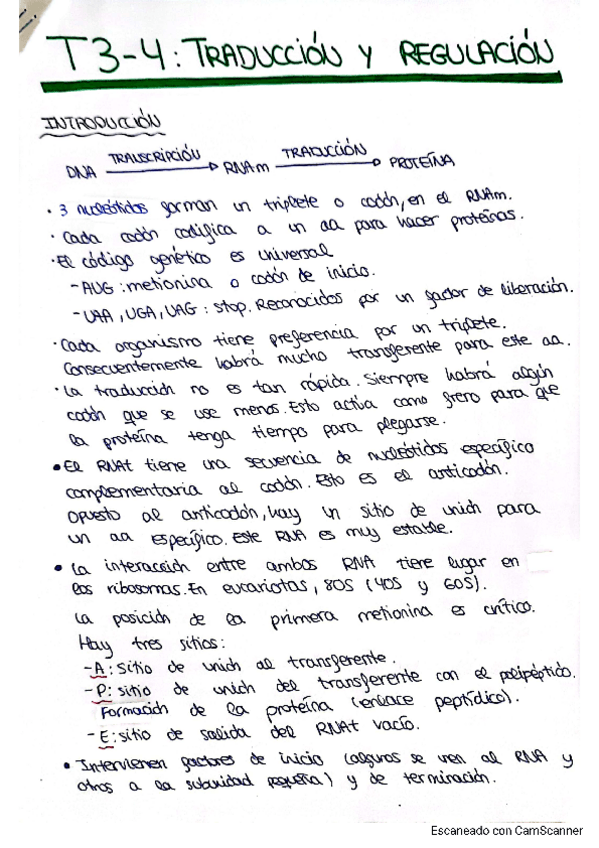 T3-4: TRADUCCIÓN Y REGULACIÓN
INTRODUCCIÓN
DNA TRANSCRIPCIÓN RNAm TRADUCCIÓN PROTEÍNA
· 3 nucleótidos forman un triplete o codón, en el RNAm.
· Cada codón codifica a un aa para hacer proteínas.
· El código genético es universal
- AUG: metionina o codón de inicio.
- UAA, UGA, UAG: stop. Reconocidos por un factor de liberación.
· Cada organismo tiene preferencia por un triplete.
Consecuentemente habrá mucho transferente para este aa.
· La traducción no es tan rápida. Siempre habrá algún
codón que se use menos. Esto actúa como freno para que
la proteína tenga tiempo para plegarse.
• El RNAt tiene una secuencia de nucleótidos específico
complementaria al codón. Esto es el anticodón.
Opuesto al anticodón, hay un sitio de unión para
un aa específico. Este RNA es muy estable.
• La interacción entre ambos RNA tiene lugar en
los ribosomas. En eucariotas, 80S (40S y 60S).
La posición de la primera metionina es crítico.
Hay tres sitios:
- A: sitio de unión al transferente.
- P: sitio de unión del transferente con el polipéptido.
Formación de la proteína (enlace peptídico).
- E: sitio de salida del RNAt vacío.
• Intervienen factores de inicio (algunos se unen al RNA y
otros a la subunidad pequeña) y de terminación.
Escaneado con CamScanner